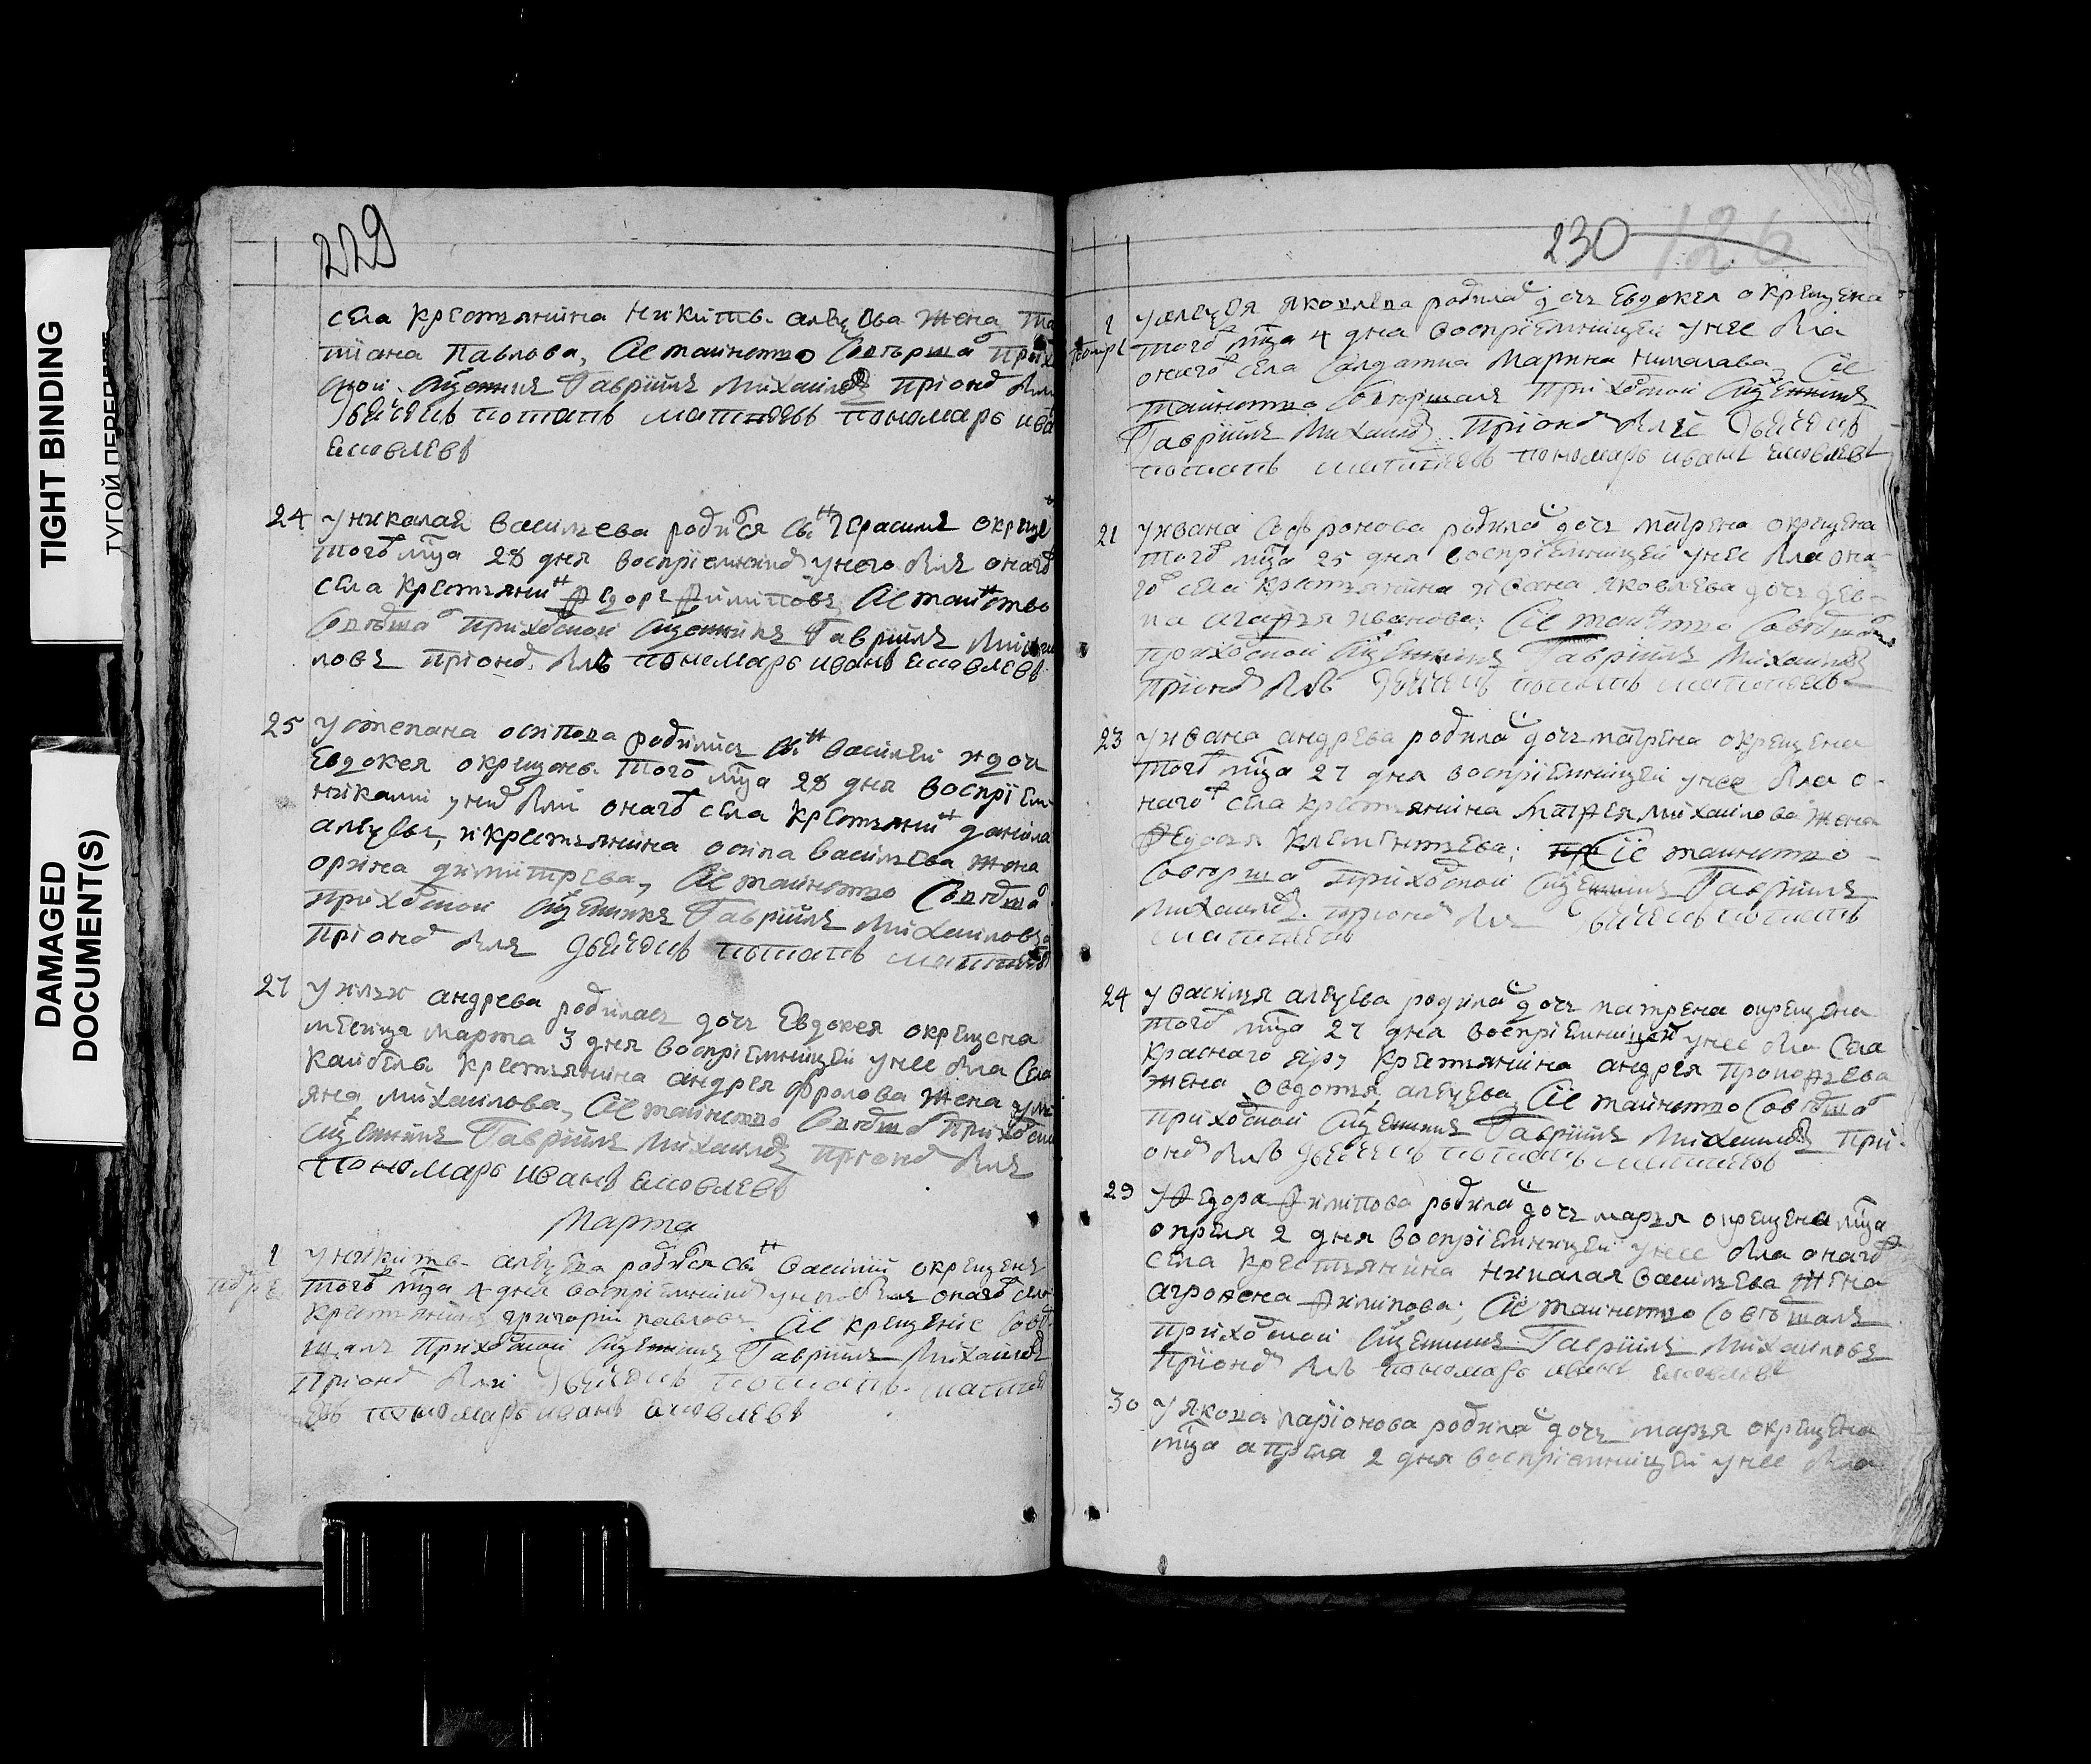 TIGHT BINDING
ТУГОЙ ПЕРЕПЛЕТ
DAMAGED
DOCUMENT(S)
229
села крестьянина никиты алеѯева жена та
тиана павлова, Сие таинство совѣрша прихо
цкой священникъ Гавриилъ Михаилов при оном был
дьячекъ потапъ матвѣевъ пономарь ива
яковлевъ
24 у николая васильева родился снъ герасимъ окреще
того мца 28 дня восприемником у него былъ онаго
села крестьянин федоръ филиповъ Сие таинство
совѣрша приходской священникъ Гавриилъ Михаи
ловъ при оном былъ пономарь иванъ яковлевъ
25 у степана осипова родились снъ василей и дочь
Евдокея окрещены того мца 28 дня восприем
никами у них были онаго села крестьянин данила
алеѯевъ, и крестьянина осипа васильева жена
орина димитрева, Сие таинство совѣрша
приходской священникъ Гавриилъ Михаиловъ
при оном былъ дьячекъ потапъ матвѣевъ
27 у ильи андрева родилась дочь Евдокея окрещена
месяца марта 3 дня восприемницей у нее была села
крестьянина андрея фролова жена
яна михаилова, Сие таинство совѣрша приходской
священникъ Гавриилъ Михаилов при оном былъ
пономарь иванъ яковлевъ
Марта
1 у никиты алеѯева родился снъ василий окрещенъ
того мца 4 дня восприемником у него былъ онаго села
крестьянинъ григорий павловъ. Сие крещение совѣр
шалъ приходской священникъ Гавриилъ Михаилов
при оном были дьячекъ потапъ матвѣ
евъ пономарь иванъ яковлевъ
230 126
1 у алеѯея яковлева родилас дочь Евдокея окрещена
того мца 4 дня восприемницей у нее была
онаго села салдатка марина николаева, Сие
таинство совершалъ приходской священникъ
Гавриилъ Михаилов. при оном были дьячекъ
потапъ матвѣевъ пономарь иванъ яковлевъ
21 у ивана софронова родилас дочь матрена окрещена
того мца 25 дня восприемницей у нее была она
го села крестьянина ивана яковлева дочь дев
ка агафья иванова: Сие таинство совѣршалъ
приходской священникъ Гавриилъ Михаилов
при оном былъ дьячекъ потапъ матвѣевъ
23 у ивана андрева родилас дочь матрена окрещена
того мца 27 дня восприемницей у нее была о
наго села крестьянина матфея михаилова жена
федосья клементьева; Сие таинство
совѣрша приходской священникъ Гавриилъ
Михаилов. при оном былъ дьячекъ потапъ
матвѣевъ
24 у василья алеѯева родилас дочь матрена окрещена
того мца 27 дня восприемницей у нее была села
краснаго яру крестьянина андрея прокофьева
жена овдотья алеѯева, Сие таинство совѣрша
приходской священникъ Гавриилъ Михаилов при
оном былъ дьячекъ потапъ матвѣевъ
29 у федора филипова родилас дочь марья окрещена мца
опреля 2 дня восприемницей у нее была онаго
села крестьянина николая васильева жена
агрофена филипова; Сие таинство совѣршалъ
приходской священникъ Гавриилъ Михаиловъ
при оном былъ пономарь иванъ яковлевъ
30 у якова ларионова родилас дочь марья окрещена
мца апреля 2 дня восприемницей у нее была